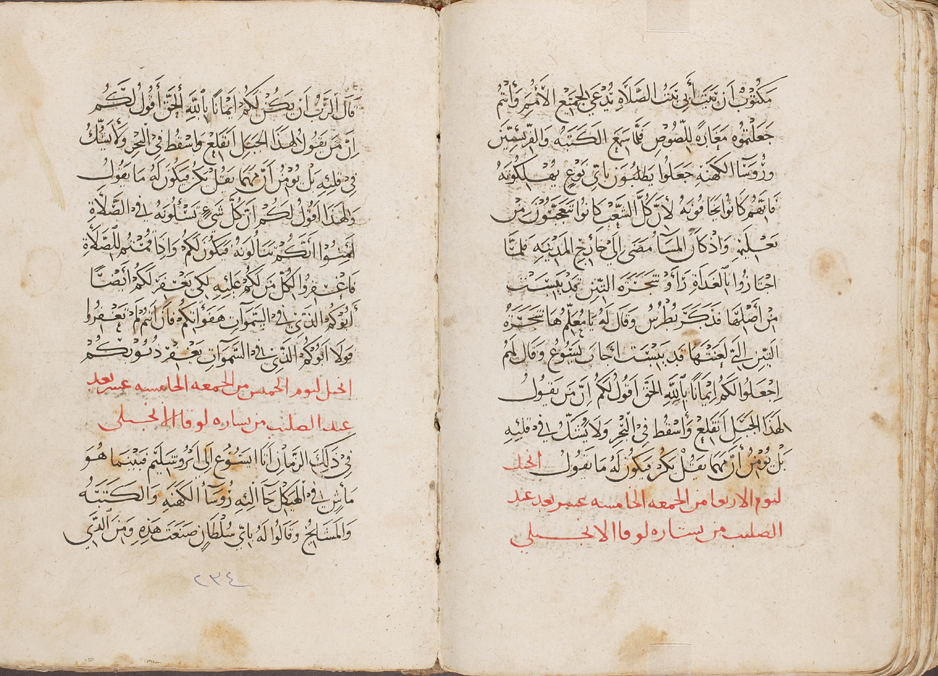 مكتوب ان بيتي بيت الصلاة يدعى لجميع الامم وانتم
جعلتموه مغارة للصوص فلما سمع الكتبه والفريسيين
وروسا الكهنه جعلوا يطلبون باي نوع يهلكونه
فانهم كانوا يخافونه لان كل الشعب كانوا يتعجبون من
تعليمه واذ كان المسا مضى الى خارج المدينه فلما
اجتازوا بالغداة راو شجرة التين قد يبست
من اصلها فتذكر بطرس وقال له يا معلم ها شجرة
التين التي لعنتها قد يبست اجاب يسوع وقال لهم
اجعلوا لكم ايمانا بالله الحق اقول لكم ان من يقول
لهذا الجبل انقلع واسقط في البحر ولا يشك في قلبه
بل يومن ان مهما يقل يكن فيكون له ما يقول انجيل
ليوم الاربعا من الجمعه الخامسه عشر بعد عيد
الصليب من بشاره لوقا الانجيلي
قال الرب ان يكن لكم ايمانا بالله الحق اقول لكم
ان من يقول لهذا الجبل انقلع واسقط في البحر ولا يشك
في قلبه بل يومن ان مهما يقل يكن فيكون له ما يقول
ولهذا اقول لكم ان كل شي تسلونه في الصلاة
امنوا انكم تنالونه فيكون لكم واذا قمتم للصلاة
فاغفروا لكل من لكم عليه لكي يغفر لكم ايضا
ابوكم الذي في السموات هفواتكم فان انتم لم تغفروا
فولا ابوكم الذي في السموات يغفر ذنوبكم
انجيل ليوم الخميس من الجمعه الخامسه عشر بعد
عيد الصليب من بشاره لوقا الانجيلي
في ذلك الزمان اتا ايسوع الى ايروشليم فبينما هو
ماش في الهيكل جا اليه روسا الكهنه والكتبه
والمشايخ وقالوا له باي سلطان صنعت هذه ومن الذي
٢٣٤